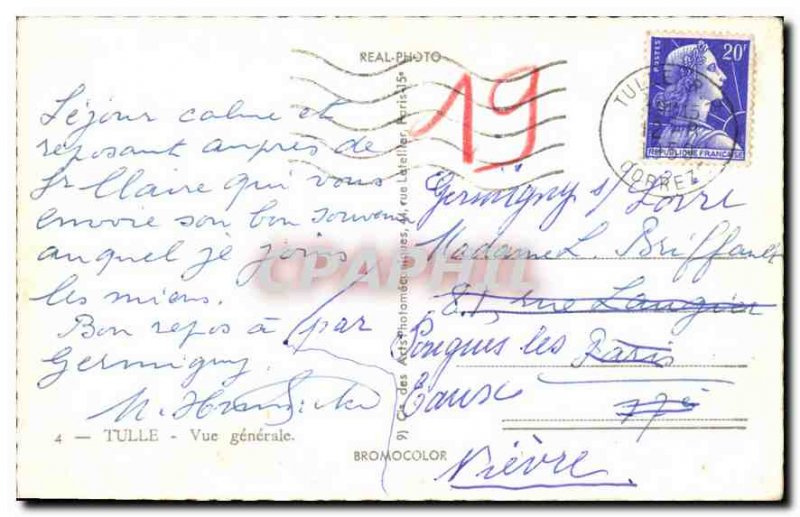 REAL-PHOTO
19
POSTES
20F
RÉPUBLIQUE FRANÇAISE
TULLE
CORREZE
Séjour calme et
reposant auprès de
Sr Claire qui vous
envoie son bon souvenir
auquel je joins
les miens.
Bon repos à
Germigny.
Germigny s/ Loire
Madame L. Briffault
81, rue Laugier
par Pougues les Paris
Eaux 17è
Nièvre.
4 — TULLE - Vue générale.
BROMOCOLOR
Cie des Arts Photomécaniques, 44, rue Letellier, Paris-15e
CPAPHIL